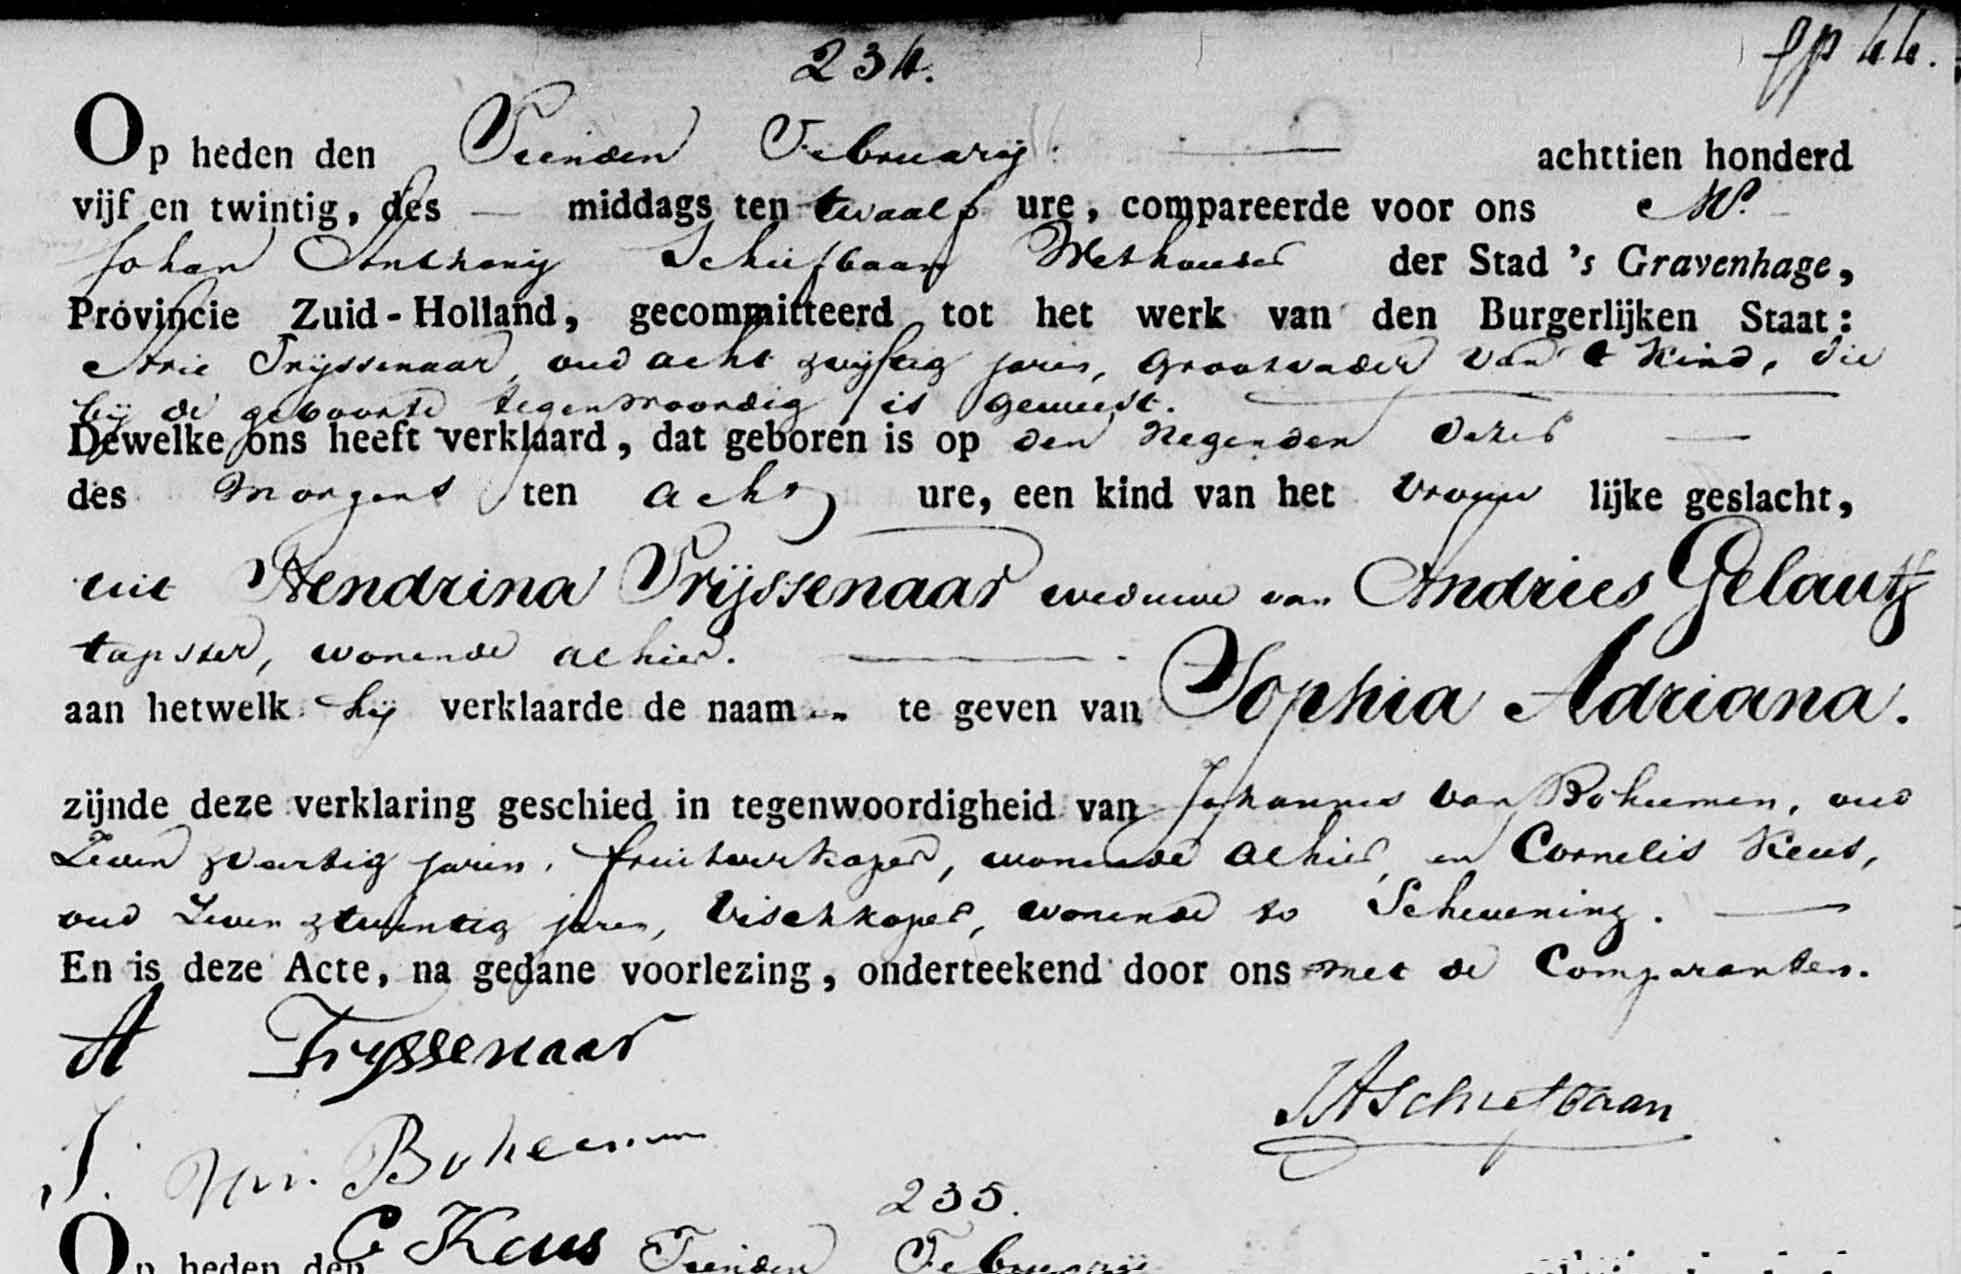 234.
Op heden den Tienden Februarij achttien honderd
vijf en twintig, des middags ten twaalf ure, compareerde voor ons Mr.
Johan Anthonij Schiefbaan Wethouder der Stad 's Gravenhage,
Provincie Zuid-Holland, gecommitteerd tot het werk van den Burgerlijken Staat:
Arie Trijssenaar, oud acht & vijftig jaren, Grootvader van 't Kind, die
bij de geboorte tegenwoordig is geweest.
Dewelke ons heeft verklaard, dat geboren is op den Negenden dezer
des Morgens ten acht ure, een kind van het Vrouwlijke geslacht,
uit Hendrina Trijssenaar weduwe van Andries Gelautz
tapster, wonende alhier.
aan hetwelk hij verklaarde de naamen te geven van Sophia Adriana.
zijnde deze verklaring geschied in tegenwoordigheid van Johannes van Boheemen, oud
Zeven & veertig jaren, fruitverkoper, wonende alhier, en Cornelis Keus,
oud Zeven & twintig jaren, Vischkoper, wonende to Schevening.
En is deze Acte, na gedane voorlezing, onderteekend door ons met de Comparanten.
A Tryssenaar
JASchiefbaan
J. van Boheemen
235.
C Keus
Op heden den Tienden Februarij